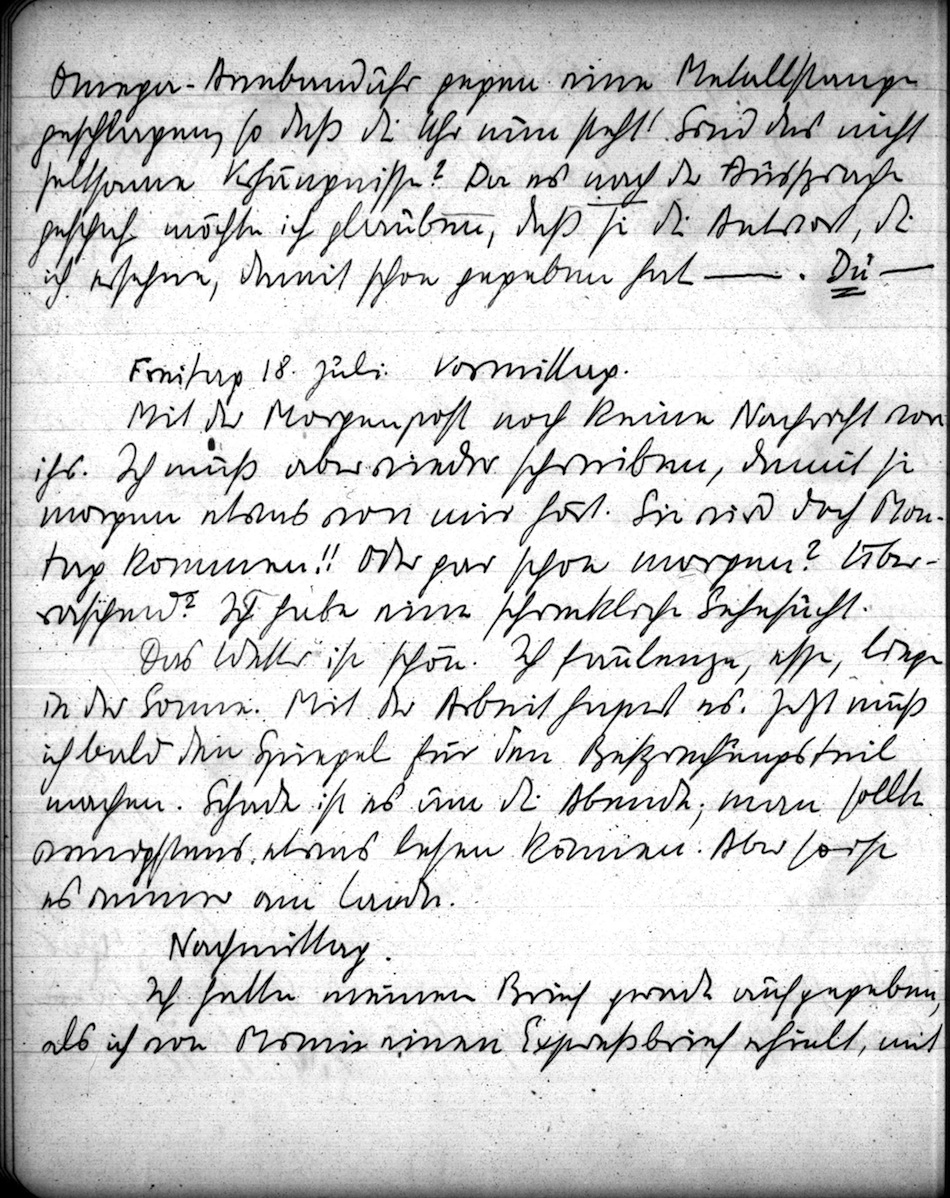 Omega-Armbanduhr gegen eine Metallstange
geschlagen, so daß die Uhr nun steht! Sind das nicht
seltsame Verhängnisse? Da es nach der Aussprache
geschah möchte ich glauben, daß sie die Antwort, die
ich ersehne, damit schon gegeben hat ——. Du —
Freitag 18. Juli. Vormittag.
Mit der Morgenpost noch keine Nachricht von
ihr. Ich muß aber wieder schreiben, damit sie
morgen etwas von mir hört. Sie wird doch Mon-
tag kommen!! Oder gar schon morgen? Über-
raschend? Ich habe eine schreckliche Sehnsucht.
Das Wetter ist schön. Ich faulenze, esse, liege
in der Sonne. Mit der Arbeit hapert es. Jetzt muß
ich bald den Spiegel für den Besprechungsteil
machen. Schade ist es um die Abende; man sollte
wenigstens etwas lesen können. Aber so ist
es immer am Lande.
Nachmittag.
Ich hatte meinen Brief gerade aufgegeben,
als ich von einen Expreßbrief erhielt, mit